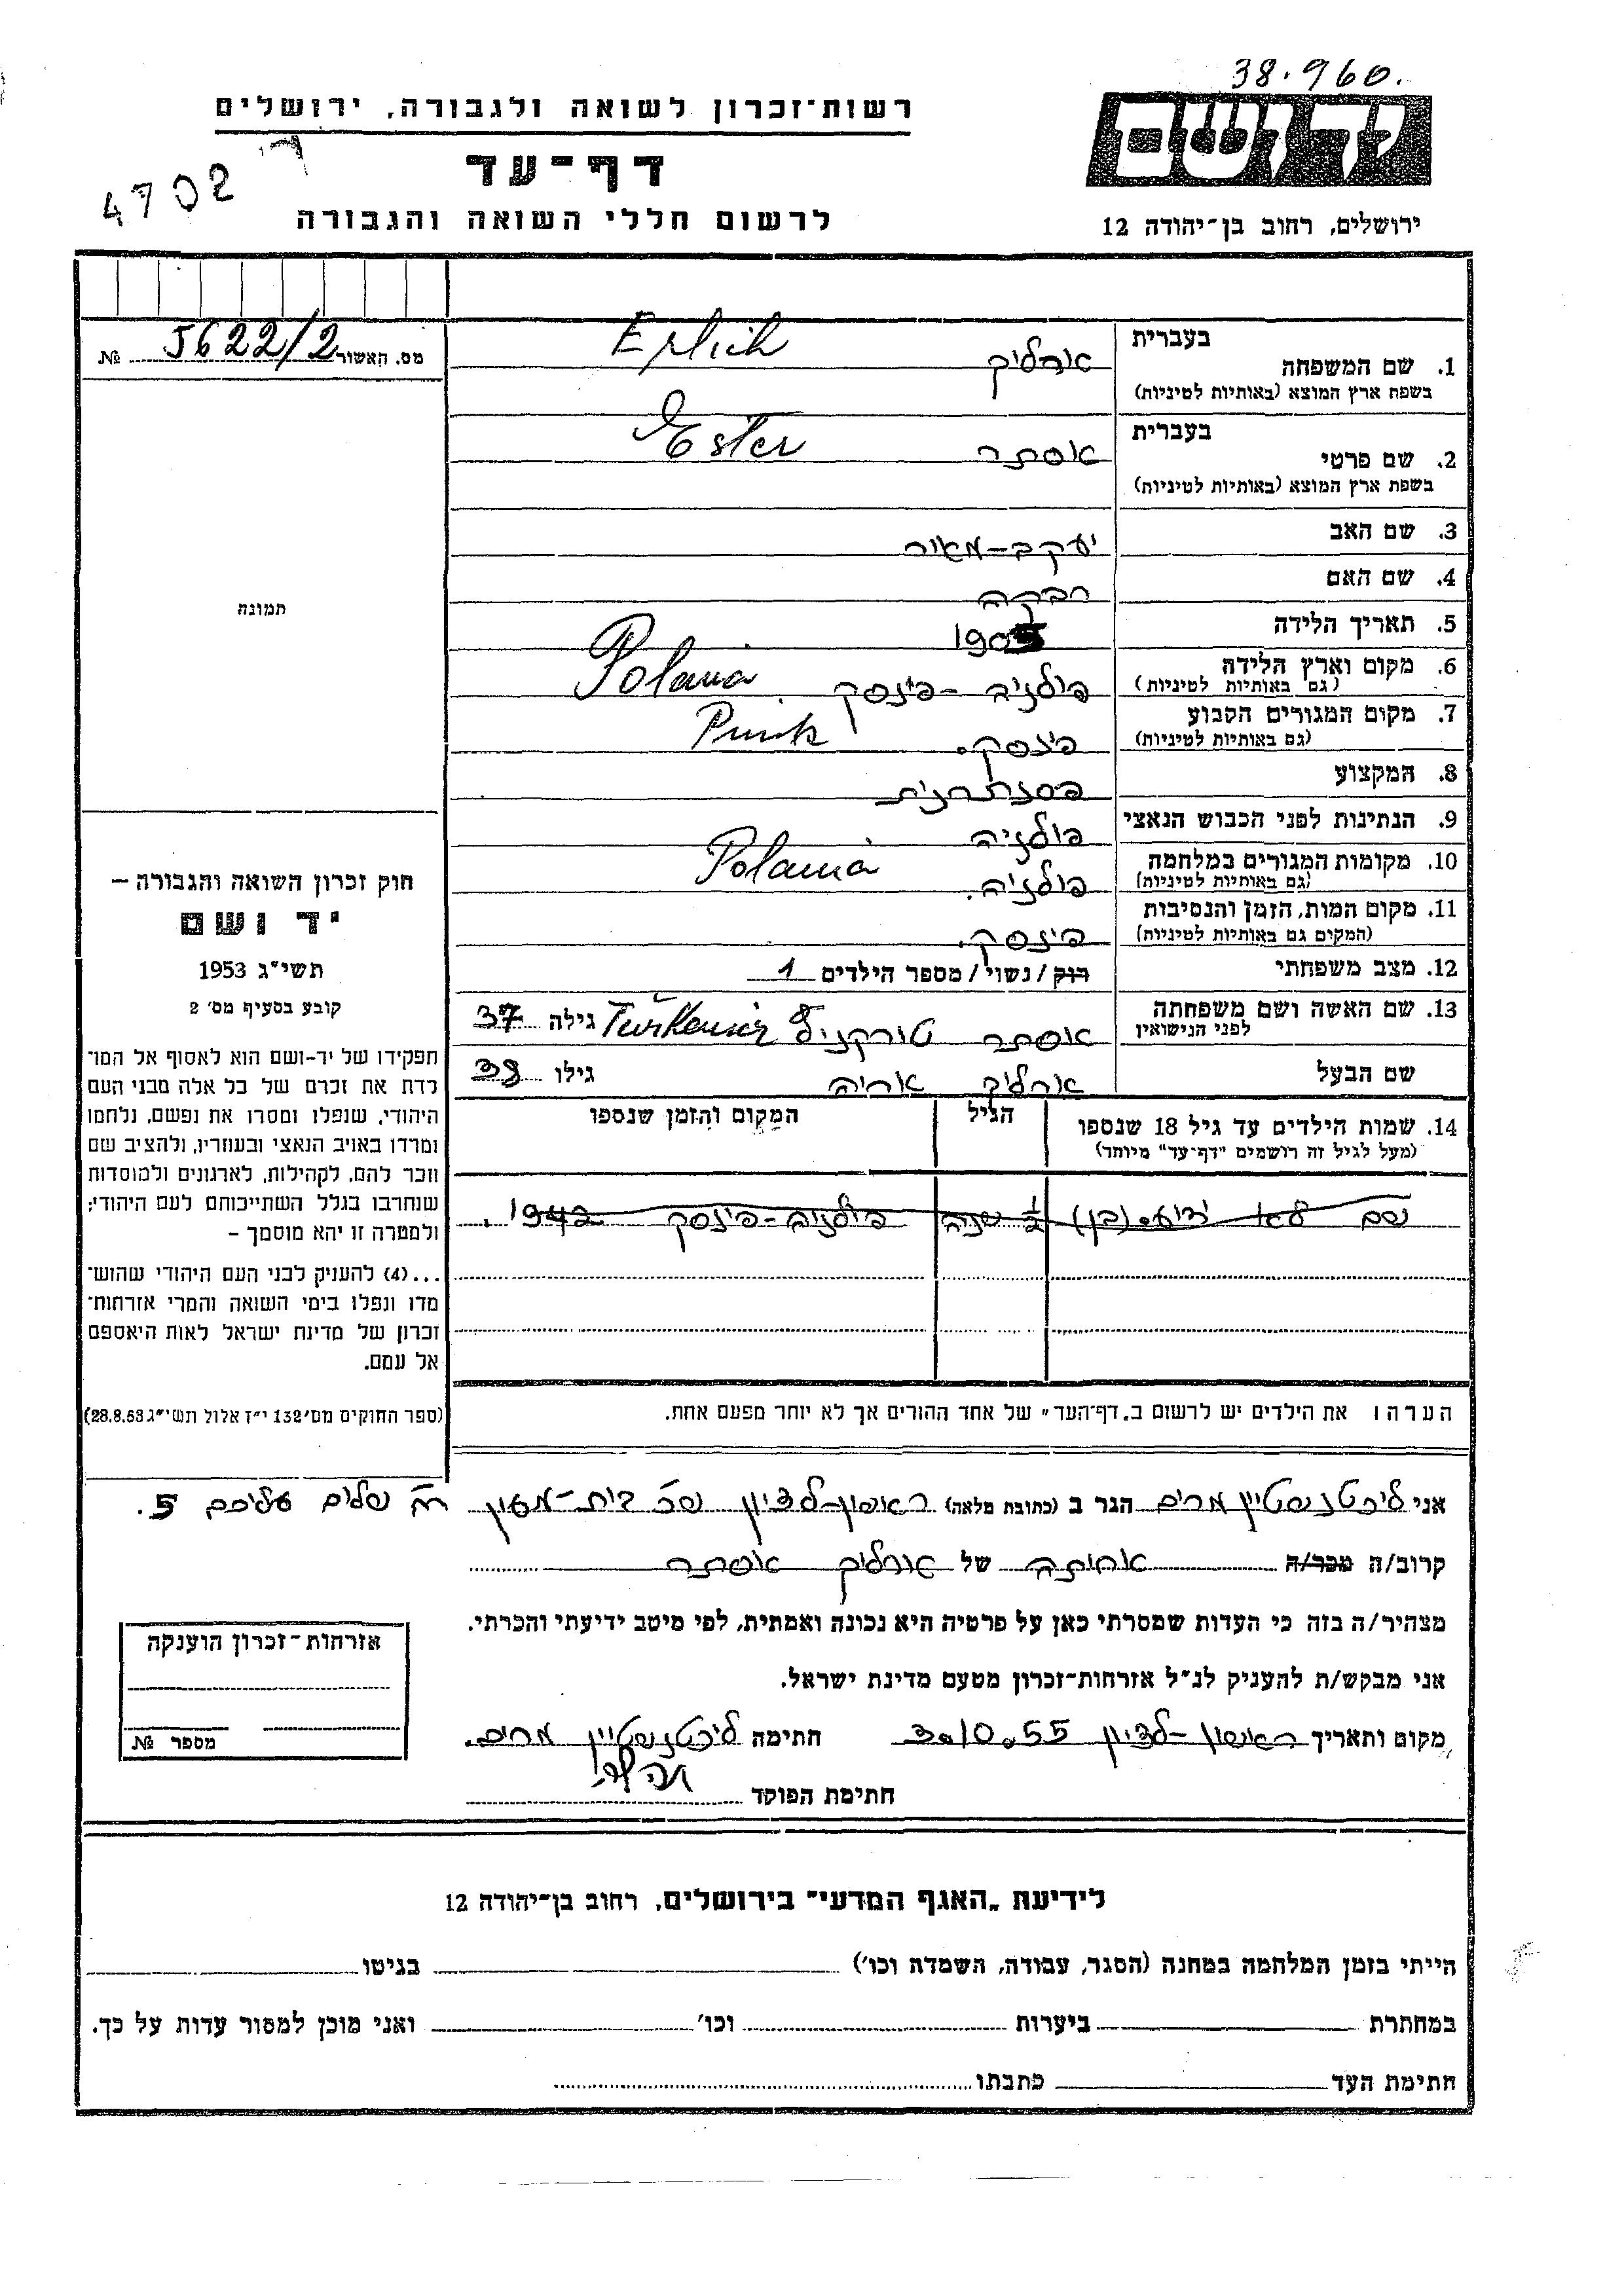 38.960.
רשות-זכרון לשואה ולגבורה, ירושלים
יד ושם
דף-עד
4702
לרשום חללי השואה והגבורה
ירושלים, רחוב בן-יהודה 12
מס. האשור 5622/2 №
בעברית
1. שם המשפחה אורליק Erlich
בשפת ארץ המוצא (באותיות לטיניות)
בעברית
2. שם פרטי אסתר Ester
בשפת ארץ המוצא (באותיות לטיניות)
3. שם האב יעקב-מאיר
4. שם האם רבקה
5. תאריך הלידה
6. מקום וארץ הלידה פולניה-פינסק Polania
(גם באותיות לטיניות)
7. מקום המגורים הקבוע פינסק. Pinsk
(גם באותיות לטיניות)
8. המקצוע
9. הנתינות לפני הכבוש הנאצי פולניה
10. מקומות המגורים במלחמה פולניה. Polania
(גם באותיות לטיניות)
11. מקום המות, הזמן והנסיבות פינסק.
(המקום גם באותיות לטיניות)
12. מצב משפחתי רווק/נשוי/ מספר הילדים 1
13. שם האשה ושם משפחתה אסתר טורקניץ Turkenicz גילה 37
לפני הנישואין
שם הבעל אורליק אריה גילו 38
14. שמות הילדים עד גיל 18 שנספו הגיל המקום והזמן שנספו
(מעל לגיל זה רושמים "דף-עד" מיוחד)
שם לא ידוע (בן) ½ שנה פולניה-פינסק 1942.
הערה: את הילדים יש לרשום ב"דף-העד" של אחד ההורים אך לא יותר מפעם אחת.
תמונה
חוק זכרון השואה והגבורה –
יד ושם
תשי"ג 1953
קובע בסעיף מס' 2
תפקידו של יד-ושם הוא לאסוף אל המו־
לדת את זכרם של כל אלה מבני העם
היהודי, שנפלו ומסרו את נפשם, נלחמו
ומרדו באויב הנאצי ובעוזריו, ולהציב שם
וזכר להם, לקהילות, לארגונים ולמוסדות
שנחרבו בגלל השתייכותם לעם היהודי;
ולמטרה זו יהא מוסמך –
...(4) להעניק לבני העם היהודי שהוש־
מדו ונפלו בימי השואה והמרי אזרחות־
זכרון של מדינת ישראל לאות היאספם
אל עמם.
(ספר החוקים מס' 132 י"ז אלול תשי"ג 28.8.53)
אני ליכטנשטיין מרים הגר ב (כתובת מלאה) ראשון-לציון שכ' בית-מעון רח' שלום עליכם 5.
קרוב/ה מכר/ה אחותה של אורליק אסתר
מצהיר/ה בזה כי העדות שמסרתי כאן על פרטיה היא נכונה ואמתית, לפי מיטב ידיעתי והכרתי.
אני מבקש/ת להעניק לנ"ל אזרחות-זכרון מטעם מדינת ישראל.
מקום ותאריך ראשון-לציון 3.10.55 חתימה ליכטנשטיין מרים.
חתימת הפוקד
אזרחות-זכרון הוענקה
מספר №
לידיעת "האגף המדעי" בירושלים, רחוב בן-יהודה 12
הייתי בזמן המלחמה במחנה (הסגר, עבודה, השמדה וכו') בגיטו
במחתרת ביערות וכו' ואני מוכן למסור עדות על כך.
חתימת העד כתבתו